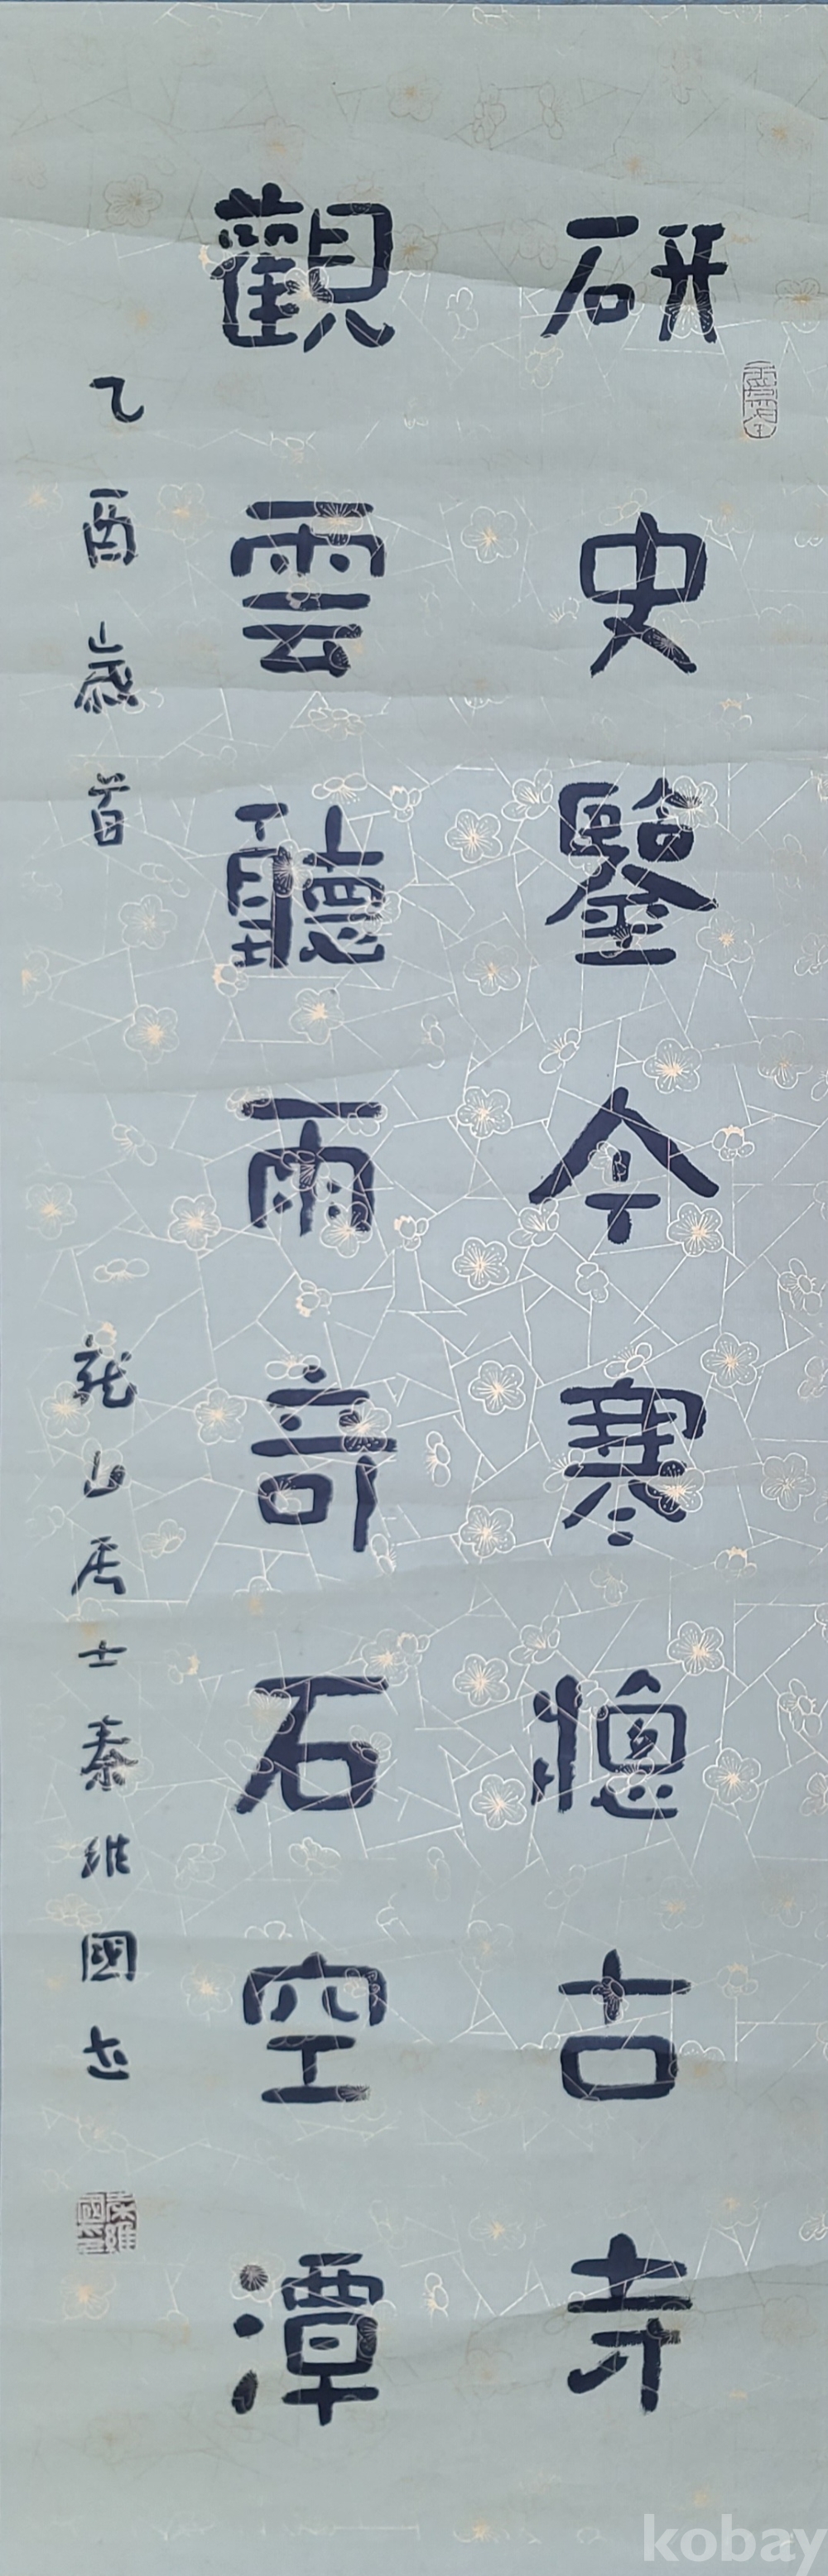 研史鑒今寒牕古寺
觀雲聽雨奇石空潭
乙酉歲首 龍山居士秦維國書
秦維國印
kobay